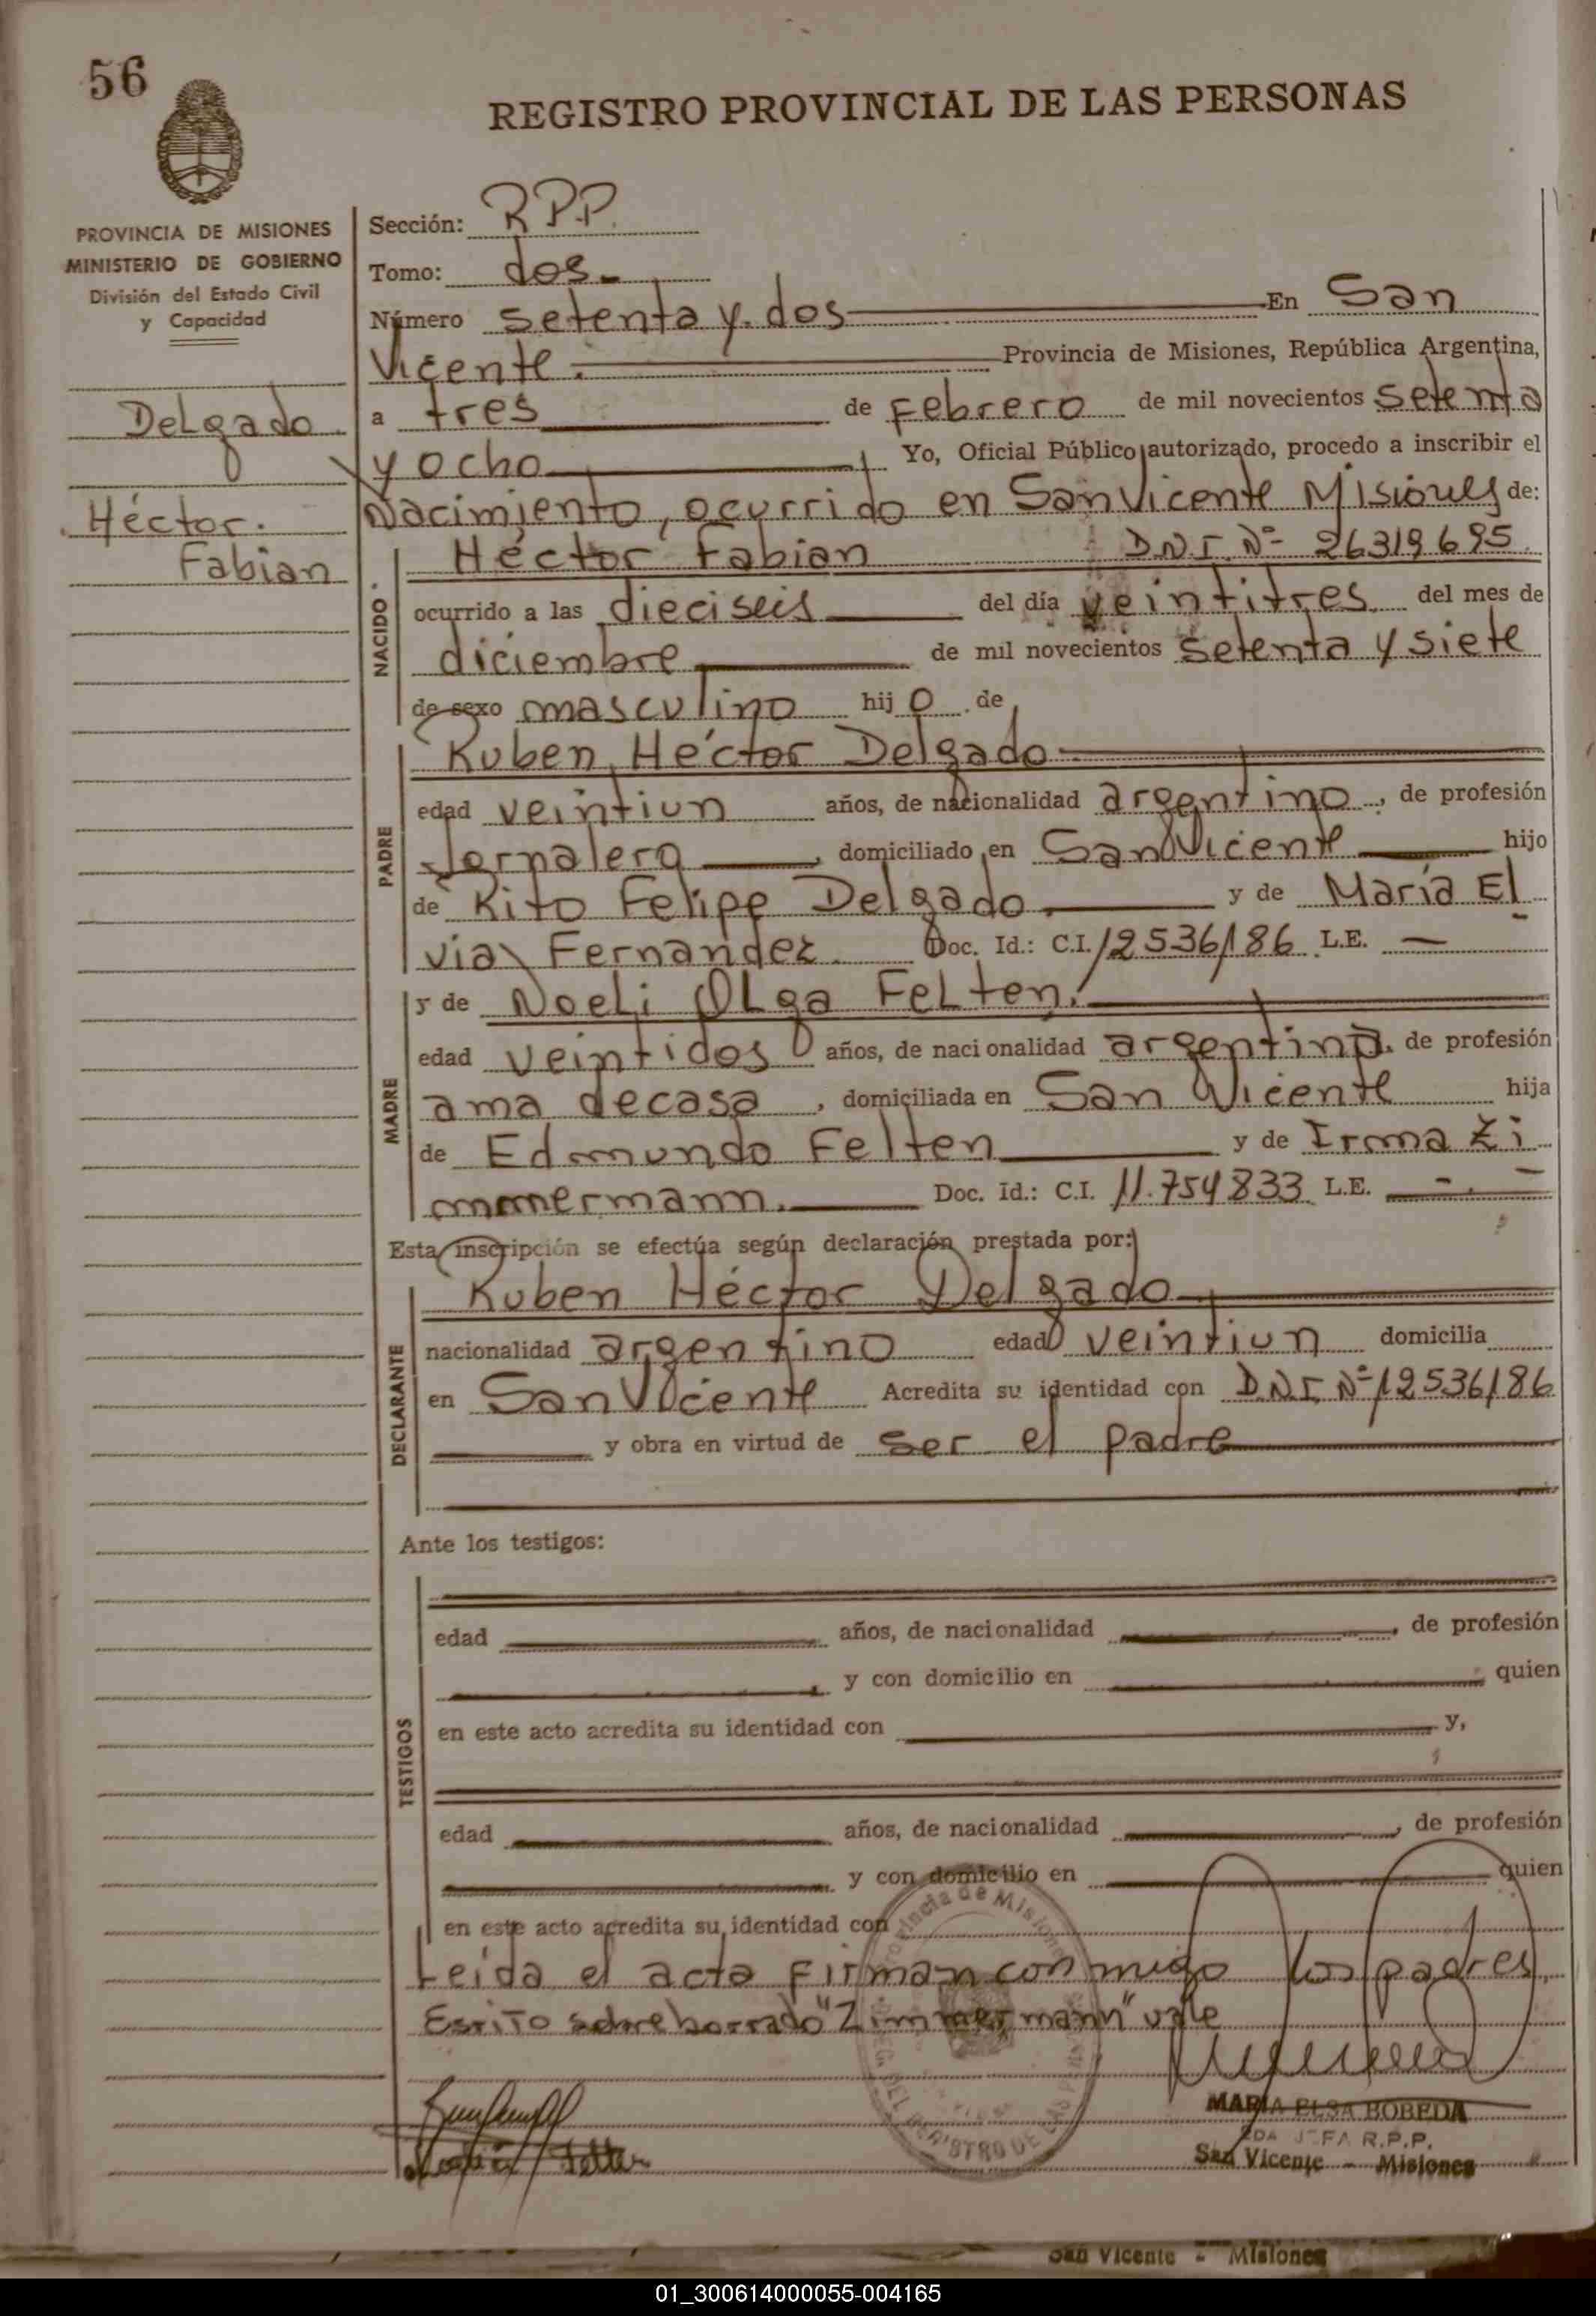 56
REGISTRO PROVINCIAL DE LAS PERSONAS
PROVINCIA DE MISIONES
MINISTERIO DE GOBIERNO
División del Estado Civil
y Capacidad
Delgado
Héctor.
Fabian
Sección: RPP.
Tomo: dos.
Número setenta y dos En San
Vicente. Provincia de Misiones, República Argentina,
a tres de Febrero de mil novecientos setenta
y ocho Yo, Oficial Público autorizado, procedo a inscribir el
Nacimiento, ocurrido en San Vicente Misiones de:
NACIDO
Héctor Fabian D.N.I. Nº 26319695
ocurrido a las dieciseis del día veintitres del mes de
diciembre de mil novecientos setenta y siete
de sexo masculino hijo de
PADRE
Ruben Héctor Delgado
edad veintiun años, de nacionalidad argentino, de profesión
Jornalero, domiciliado en San Vicente hijo
de Rito Felipe Delgado y de María El
via Fernandez. Doc. Id.: C.I. 12536186 L.E. —
MADRE
y de Noeli Olga Felten.
edad veintidos años, de nacionalidad argentina, de profesión
ama de casa, domiciliada en San Vicente hija
de Edmundo Felten y de Irma Zi
mmermann. Doc. Id.: C.I. 11.754833 L.E. —
Esta inscripción se efectúa según declaración prestada por:
DECLARANTE
Ruben Héctor Delgado
nacionalidad argentino edad veintiun domicilia
en San Vicente Acredita su identidad con D.N.I. Nº 12536186
y obra en virtud de ser el padre
Ante los testigos:
TESTIGOS
edad años, de nacionalidad, de profesión
y con domicilio en quien
en este acto acredita su identidad con y,
edad años, de nacionalidad, de profesión
y con domicilio en quien
en este acto acredita su identidad con
Leida el acta firman conmigo los padres.
Esrito sobre borrado "Zimmermann" vale
MARIA ELSA BOBEDA
JEFA R.P.P.
San Vicente - Misiones
San Vicente - Misiones
01_300614000055-004165